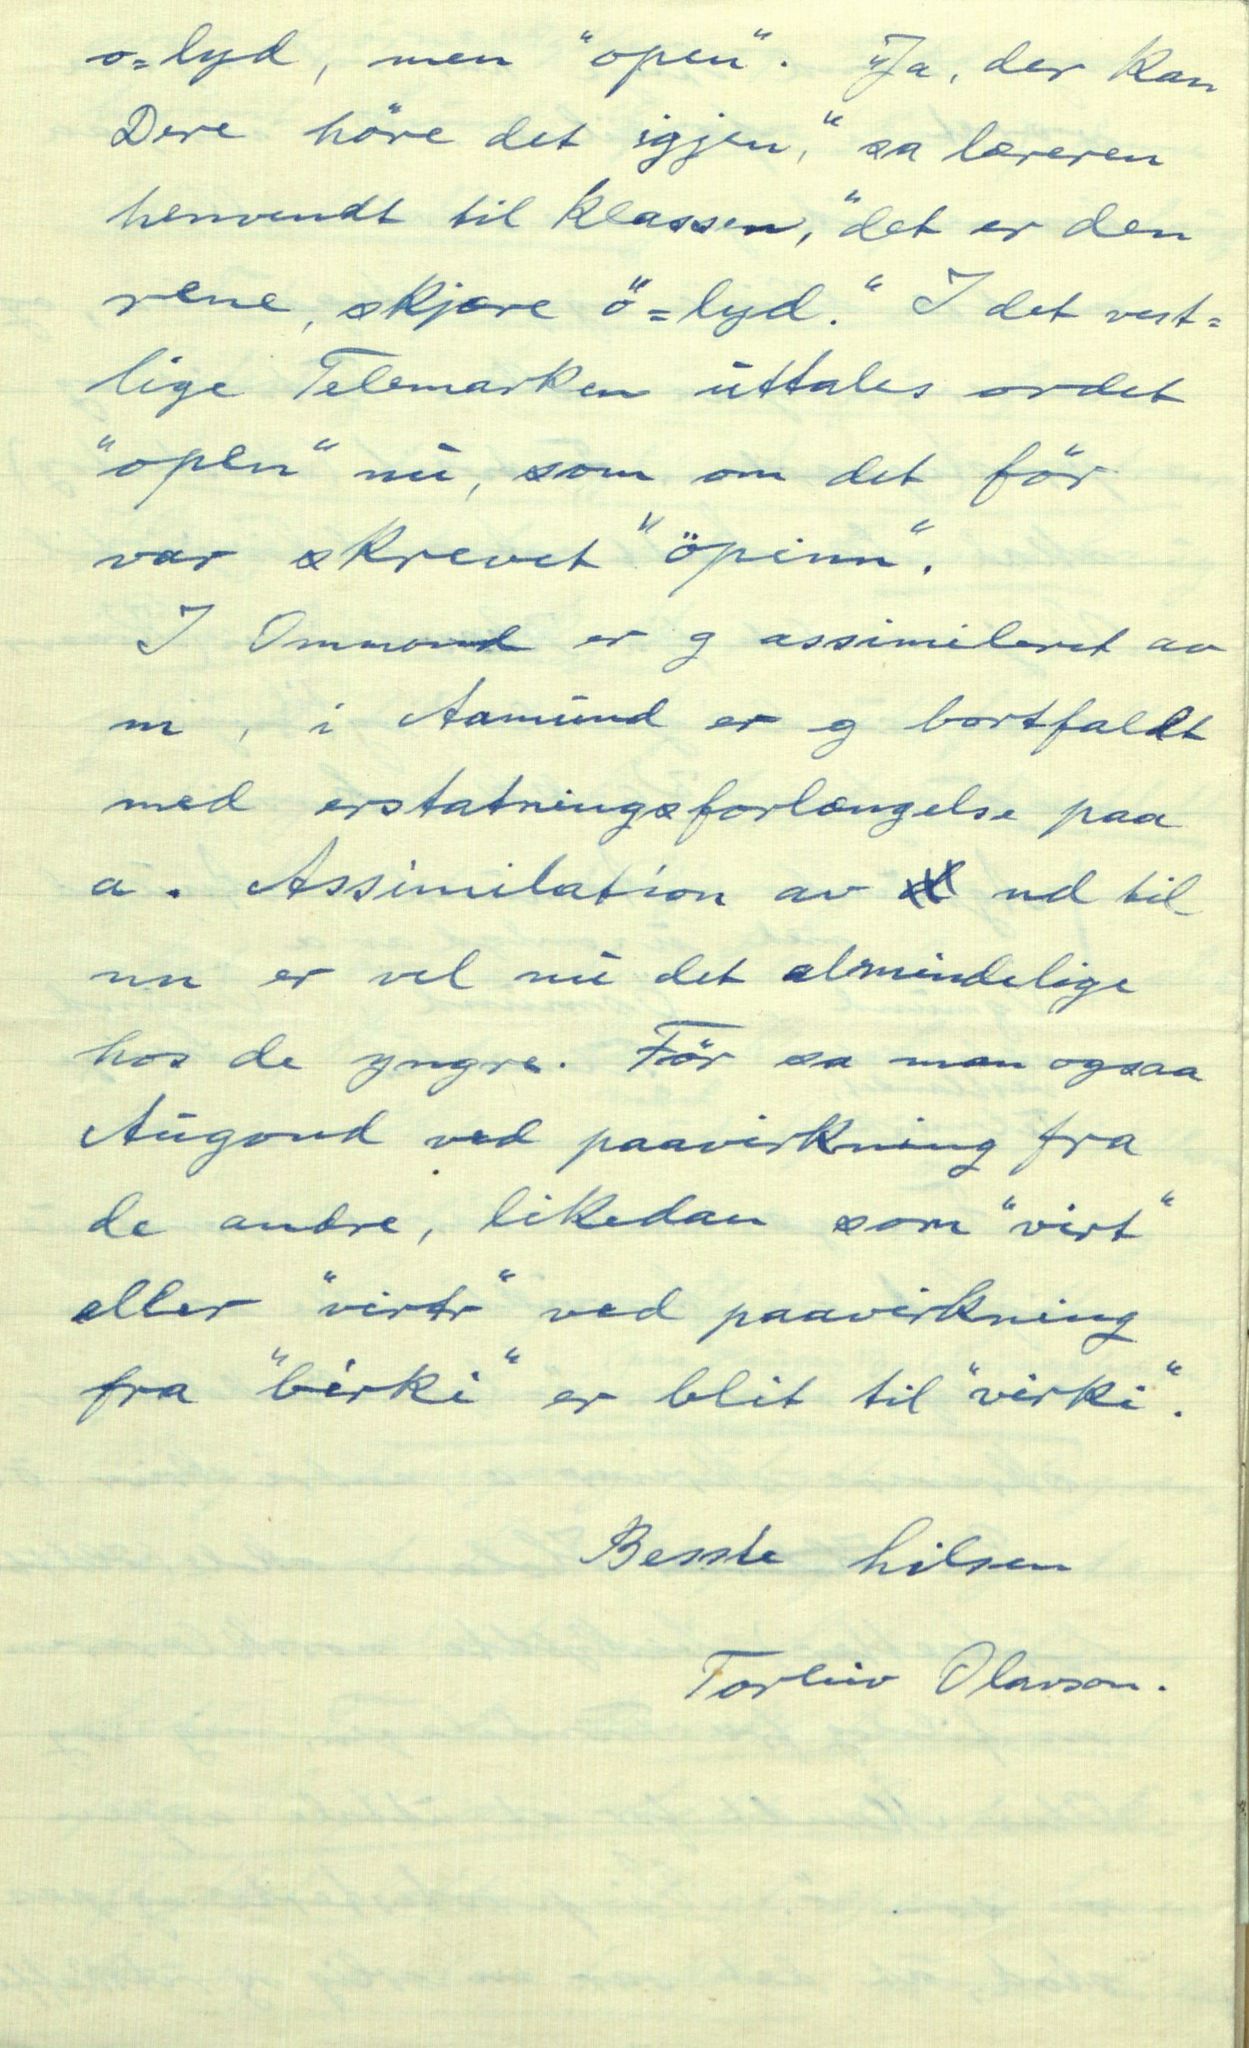 o=lyd, men "open". "Ja, der kan
Dere höre det igjen," sa læreren
henvendt til klassen, "det er den
rene, skjære ö=lyd." I det vest=
lige Telemarken uttales ordet
"open" nu, som om det för
var skrevet "öpinn".
I Ommond er g assimileret av
m, i Aamund er g bortfaldt
med erstatningsforlængelse paa
a. Assimilation av nd til
nn er vel nu det almindelige
hos de yngre. För sa man ogsaa
Augond ved paavirkning fra
de andre, likedan som "virt"
eller "virtr" ved paavirkning
fra "birki" er blit til "virki".
Besste hilsen
Torleiv Olavson.